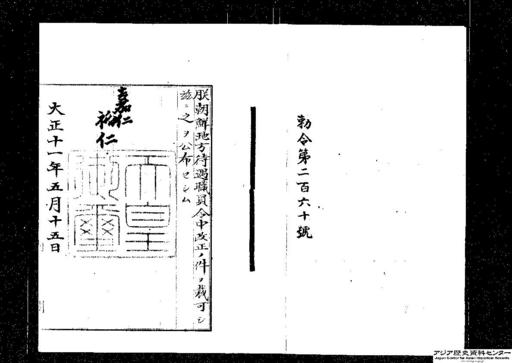 勅令第二百六十號
朕朝鮮地方待遇職員令中改正ノ件ヲ裁可シ
茲ニ之ヲ公布セシム
嘉仁
裕仁
天皇
御璽
大正十一年五月十五日
アジア歴史資料センター
Japan Center for Asian Historical Records